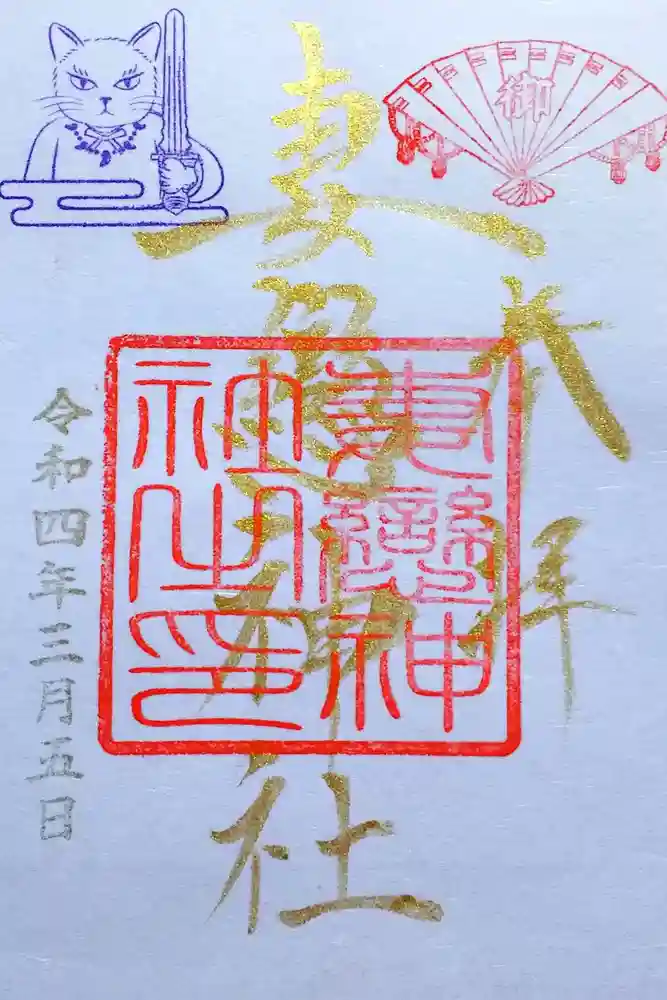 御
奉拝
妻戀神社
妻戀神
社之印
令和四年三月五日